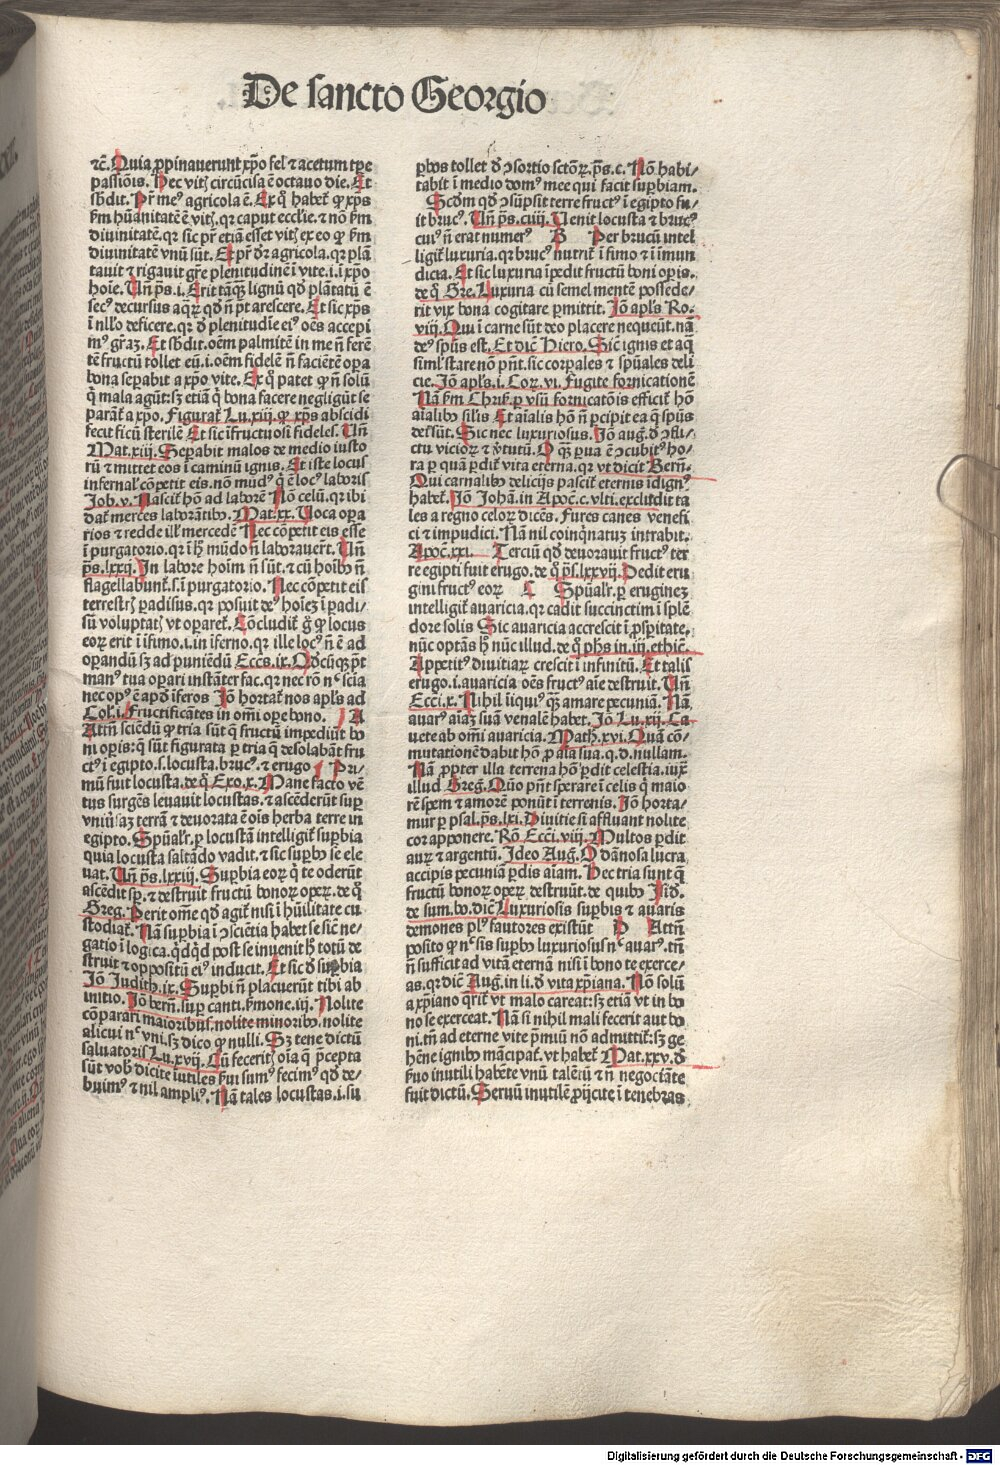 De sancto Georgio
ꝛc̄. Quia ꝓpinauerunt xp̄o fel ⁊ acetum tꝑe
passiōis. Nec vitꝭ circūcisa ē octauo die. Et
sb̄dit. Pr̄ me⁹ agricola ē. Ex q̊ habet̉ ꝙ xp̄s
ẜm hūanitatē ē vitꝭ. qꝛ caput eccl̄ie. ⁊ nō ẜm
diuinitatē. qꝛ sic pr̄ etiā esset vitꝭ ex eo ꝙ ẜm
diuinitatē vnū sūt. Et pr̄ dr̄ agricola. qꝛ plā
tauit ⁊ rigauit gr̄e plenitudinē ī vite. i. ī xp̄o
hoīe. Vn̄ ps̄. i. Erit tāqꝫ lignū qd̄ plātatū ē
sec⁹ decursus aqꝝ qd̄ n̄ pt̄ arescere. Et sic xp̄s
ī nll̄o deficere. qꝛ d̓ plenitudīe ei⁹ oēs accepi
m⁹ gr̄aꝫ. Et sb̄dit. oēm palmitē in me n̄ ferē
tē fructū tollet eū. i. oēm fidelē n̄ faciētē oꝑa
bona seꝑabit a xp̄o vite. Ex q̊ patet ꝙ n̄ solū
q̇ mala agūt: sꝫ etiā q̇ bona facere negligūt se
parāt̉ a xp̄o. Figurat̉ Lu. xiii. ꝙ xp̄s abscidi
fecit ficū sterilē Et sic īfructuosi fideles. Vn̄
Mat. xiii. Seꝑabit malos de medio iusto
rū ⁊ mittet eos ī caminū ignis. Et iste locus
infernal̓ cōpetit eis. nō mūd⁹ q̇ ē loc⁹ laboris
Job. v. Nascit̉ hō ad laborē Nō celū. qꝛ ibi
dat̉ merces laborātibꝰ. Mat. xx. Uoca oꝑa
rios ⁊ redde ill̓ mercedē Nec cōpetit eis esse
ī purgatorio. qꝛ ī hͦ mūdo n̄ laborauer̄t. Vn̄
ps̄. lxxij. In labore hoīm n̄ sūt. ⁊ cū hoībꝰ n̄
flagellabunt̉. s. ī purgatorio. Nec cōpetit eis
terrestrꝭ ꝑadisus. qꝛ posuit de⁹ hoīeꝫ ī ꝑadi⸗
sū voluptatꝭ vt oꝑaret̉. Cōcludit̉ g̊ ꝙ locus
eoꝝ erit ī īfimo. i. in īferno. qꝛ ille loc⁹ n̄ ē ad
oꝑandū sꝫ ad puniēdū Eccs. ix. Qd̄cūqꝫ pt̄
man⁹ tua oꝑari instāter fac. qꝛ nec rō n̄ scīa
nec op⁹ ē apd̓ īferos Jō hortat̉ nos apl̄s ad
Col̓. i. Fructificātes in omī oꝑe bono. A
Attn̄ sciēdū ꝙ tria sūt q̄ fructū impediūt bo
ni operis: q̄ sūt figurata ꝑ tria q̄ desolabāt fru
ct⁹ ī egipto. s. locusta. bruc⁹. ⁊ erugo Pri⸗
mū fuit locusta. de q̊ Exo. x. Mane facto vē
tus surgēs leuauit locustas. ⁊ ascēderūt suꝑ
vniū̓saꝫ terrā ⁊ deuorata ē oīs herba terre in
egipto. Spūalr̄. ꝑ locustā intelligit̉ suꝑbia
quia locusta saltādo vadit. ⁊ sic suꝑbꝰ se ele
uat. Vn̄ ps̄. lxxiij. Suꝑbia eoꝝ q̇ te oderūt
ascēdit sp̄. ⁊ destruit fructū bonoꝝ oꝑeꝝ. de q̊
Greg. Perit om̄e qd̄ agit̉ nisi ī hūilitate cu
stodiat̉. Nā suꝑbia ī ↄsciētia habet se sic̄ ne⸗
gatio ī logica. q̇dq̇d post se inuenit hͦ totū de
struit ⁊ oppositū ei⁹ inducit. Et sic d̓ suꝑbia
Jō Judith. ix. Suꝑbi n̄ placuerūt tibi ab
initio. Jō bern̄. suꝑ canti. ẜmone. iij. Nolite
cōparari maioribus. nolite minoribꝰ. nolite
alicui n̄ vni. sꝫ dico ꝙ nulli. Sꝫ tene dictū
saluatoris Lu. xvij. Cū feceritꝭ oīa q̄ p̄cepta
sūt vob̓ dicite īutiles ẜui sum⁹ fecim⁹ qd̄ de⸗
buim⁹ ⁊ nil ampli⁹. Nā tales locustas. i. su
ꝑbos tollet d̓ ↄsortio sctōꝝ. ps̄. c. Nō habi⸗
tabit ī medio dom⁹ mee qui facit suꝑbiam.
Scd̄m qd̄ ↄsūpsit terre fruct⁹ ī egipto fu⸗
it bruc⁹. Vn̄ ps̄. ciiij. Uenit locusta ⁊ bruc⁹
cui⁹ n̄ erat numer⁹ B Per brucū intel
ligit̉ luxuria. qꝛ bruc⁹ nutrit̉ ī fimo ⁊ ī imun
dicia. Et sic luxuria īpedit fructū boni oꝑis.
de q̊ Gre. Luxuria cū semel mentē possede⸗
rit vix bona cogitare ꝑmittit. Jō apl̄s Ro.
viij. Qui ī carne sūt deo placere nequeūt. nā
de⁹ spūs est. Et dic̄ Hiero. Sic̄ ignis et aq̄
siml̓ stare nō pn̄t. sic corꝑales ⁊ spūales deli
cie. Jō apl̄s. i. Coꝝ. vi. Fugite fornicationē
Nā ẜm Chris. ꝑ vsū fornicatōis efficit̉ hō
aīalibꝰ sil̓is Et aīalis hō n̄ ꝑcipit ea q̄ spūs
dei sūt. Sic nec luxuriosus. Jō aug. d̓ ↄfli⸗
ctu vicioꝝ ⁊ v̓tutū. O qꝫ ꝑua ē ↄcubit⁹ ho⸗
ra ꝑ quā ꝑdit̉ vita eterna. qꝛ vt dicit Bern̄.
Qui carnalibꝰ delicijs pascit̉ eternis īdign⁹
habet̉. Jō Johā. in Apoc̄. c. vlti. excludit ta
les a regno celoꝝ dicēs. Fures canes venefi
ci ⁊ impudici. Nā nil coinq̇natuꝫ intrabit.
Apoc̄. xxi. Terciū qd̄ deuorauit fruct⁹ ter
re egipti fuit erugo. de q̊ ps̄. lxxvij. Dedit eru
gini fruct⁹ eoꝝ C Spūalr̄. ꝑ erugineꝫ
intelligit̉ auaricia. qꝛ cadit succinctim ī splē
dore solis Sic auaricia accrescit ī ꝓsꝑitate.
nūc optās hͦ nūc illud. de q̊ phs̄ in. iij. ethic̄.
Appetit⁹ diuitiaꝝ crescit ī infinitū. Et talis
erugo. i. auaricia oēs fruct⁹ aīe destruit. Vn̄
Ecci. x. Nihil īiqui⁹ qꝫ amare pecuniā. Nā
auar⁹ aīaꝫ suā venalē habet. Jō Lu. xij. Ca⸗
uete ab omī auaricia. Math. xvi. Quā cō⸗
mutationē dabit hō ꝓ aīa sua. q. d. nullam.
Nā ꝓpter illa terrena hō ꝑdit celestia. iuxͣ
illud Greg. Quō pn̄t sperare ī celis q̇ maio
rē spem ⁊ amorē ponūt ī terrenis. Jō horta⸗
mur ꝑ psal. ps̄. lxi. Diuitie si affluant nolite
cor apponere. Rō Ecci. viij. Multos ꝑdit
auꝝ ⁊ argentū. Ideo Aug. O dānosa lucra
accipis pecuniā ꝑdis aīam. Hec tria sunt q̄
fructū bonoꝝ oꝑeꝝ destruūt. de quibꝰ Isid̓.
de sum. bo. dic̄ Luxuriosis suꝑbis ⁊ auaris
demones pl⁹ fautores existūt D Attn̄
posito ꝙ n̄ sis suꝑbꝰ luxuriosus n̄ auar⁹. tn̄
n̄ sufficit ad vitā eternā nisi ī bono te exerce⸗
as. qꝛ dic̄ Aug. in li. d̓ vita xp̄iana. Nō solū
a xp̄iano q̄rit̉ vt malo careat: sꝫ etiā vt in bo
no se exerceat. Nā si nihil mali fecerit aut bo
ni. tn̄ ad eterne vite p̄miū nō admittit̉: sꝫ ge
hēne ignibꝰ mācipat̉. vt habet̉ Mat. xxv. d̓
ẜuo inutili habēte vnū talētū ⁊ n̄ negociāte
fuit dictū. Seruū inutilē ꝓijcite ī tenebras
Digitalisierung gefördert durch die Deutsche Forschungsgemeinschaft - DFG